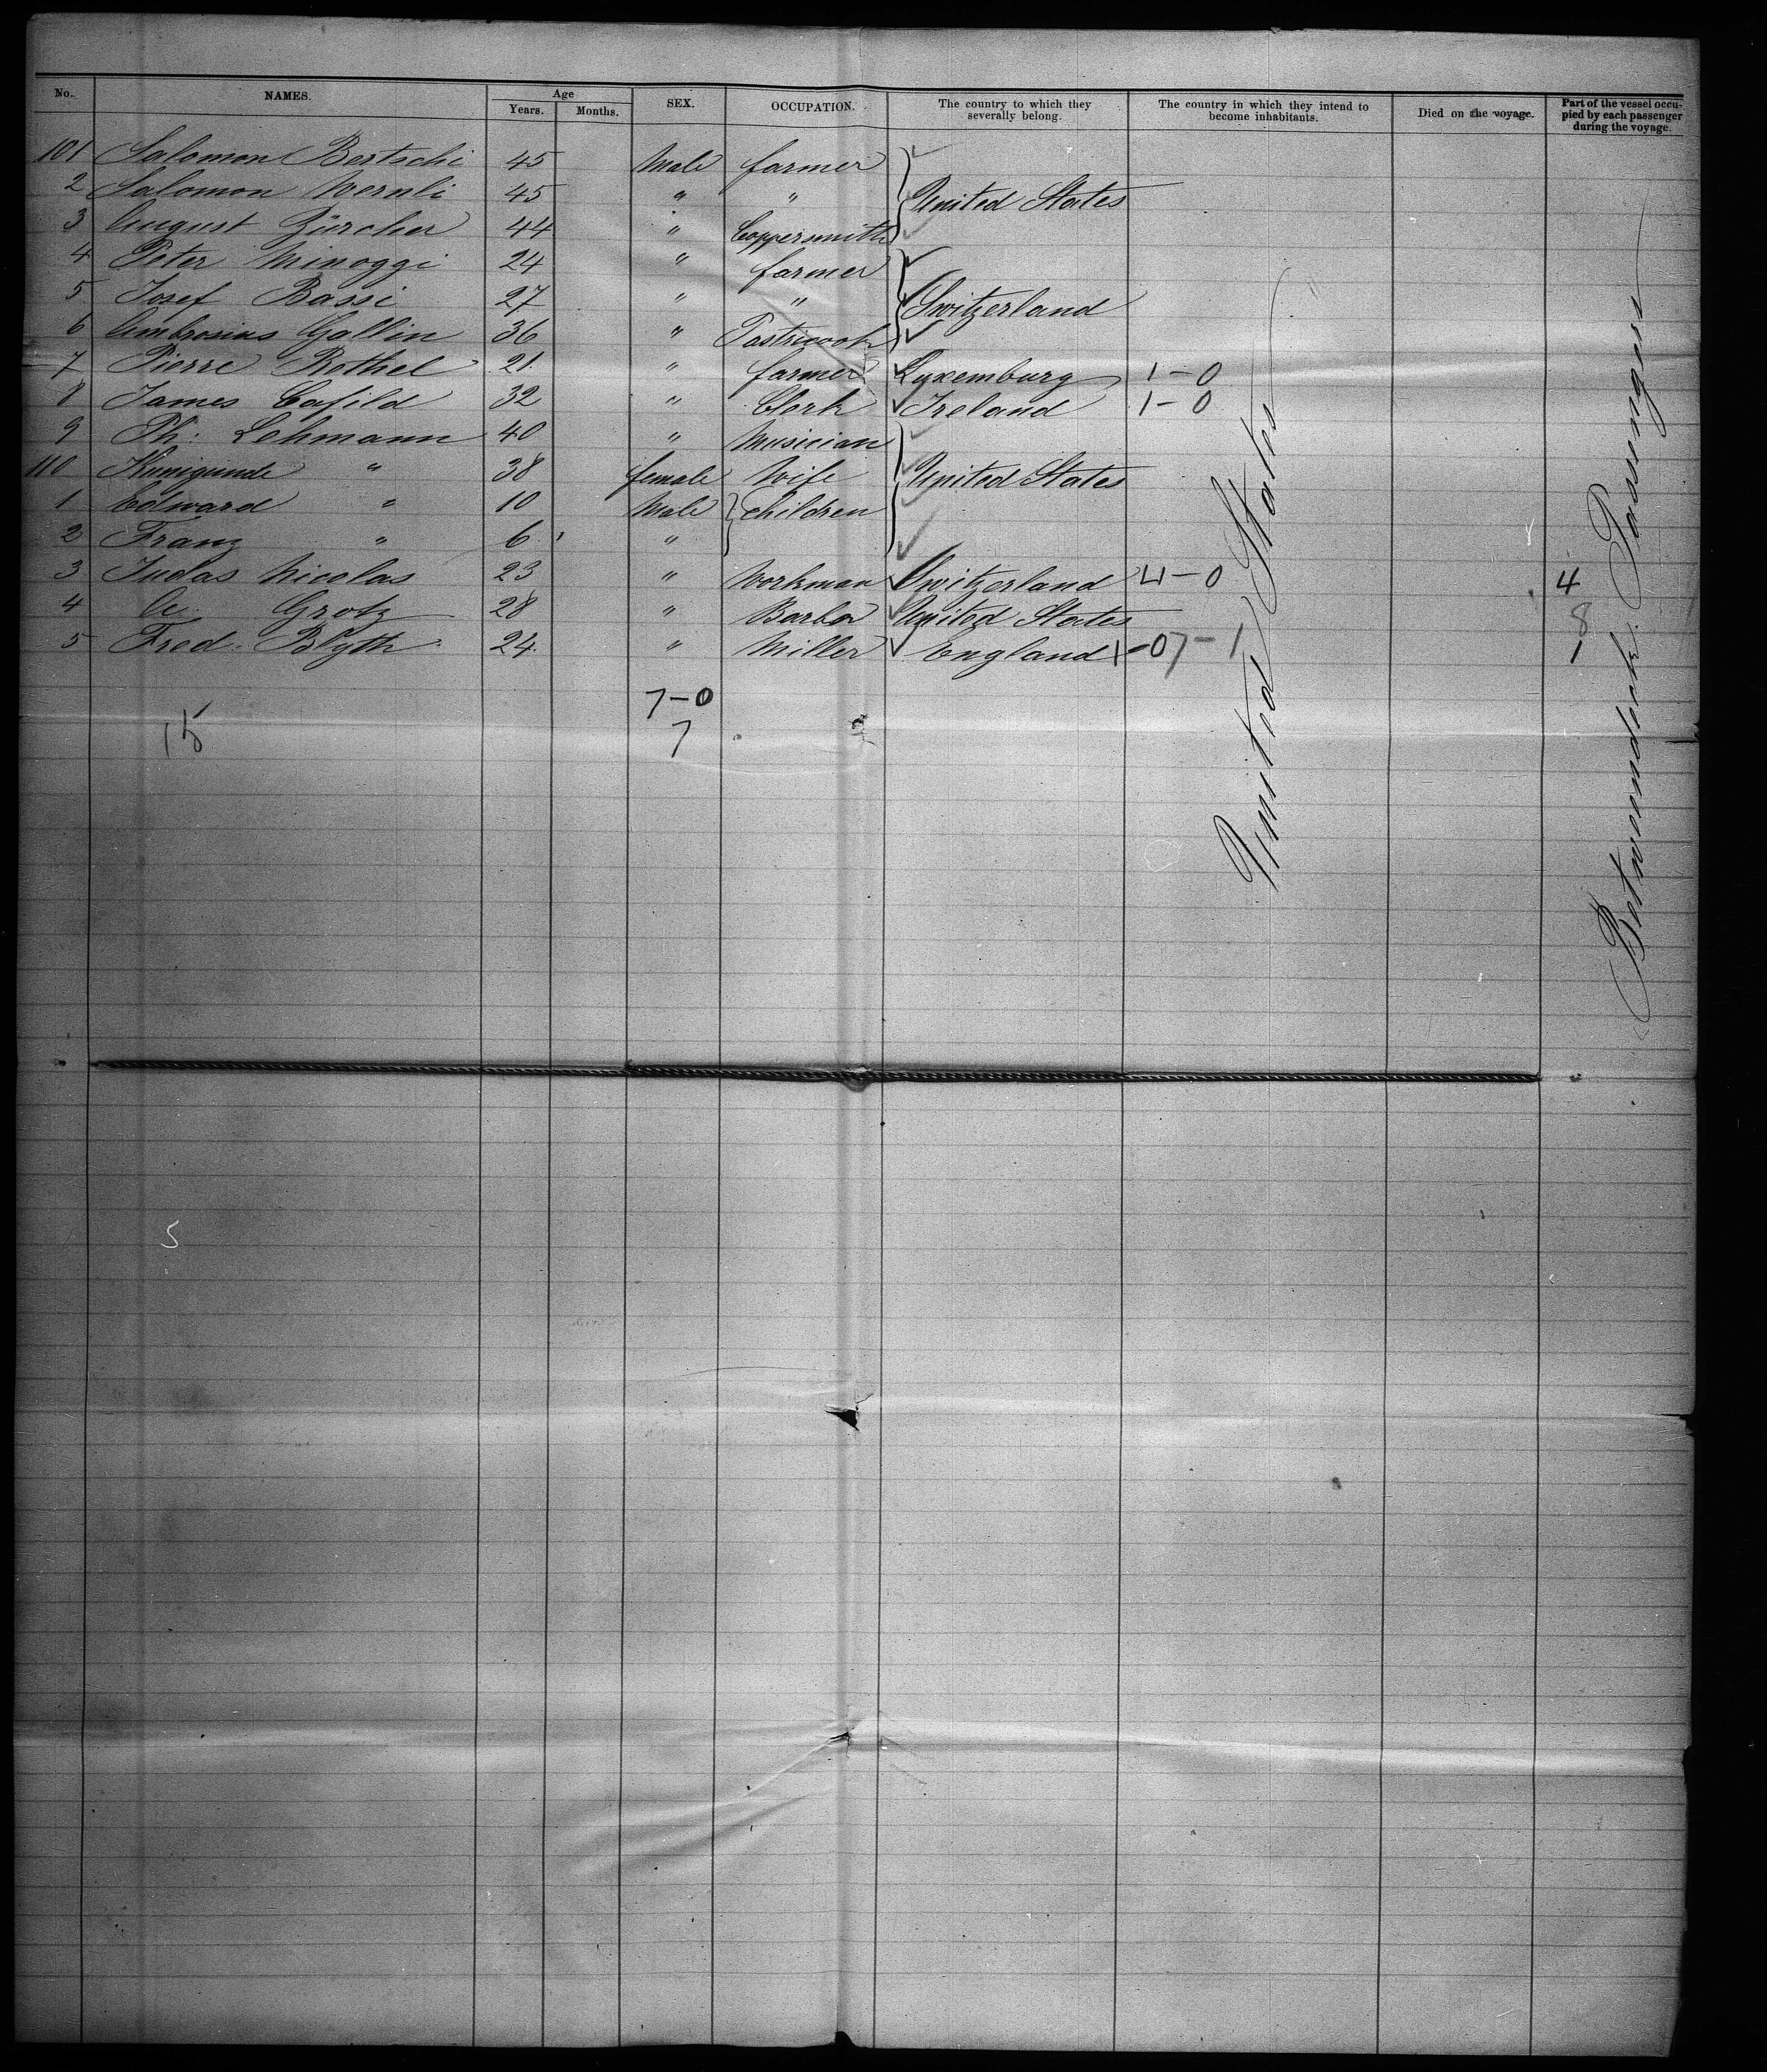 No. NAMES. Age Years. Months. SEX. OCCUPATION. The country to which they severally belong. The country in which they intend to become inhabitants. Died on the voyage. Part of the vessel occupied by each passenger during the voyage.
101 Salomon Bertschi 45 Male farmer
2 Salomon Wernli 45 " " United States
3 August Zürcher 44 " Coppersmith
4 Peter Minoggi 24 " farmer
5 Josef Bassi 27 " " Switzerland
6 Ambrosius Gallin 36 " Pastricook
7 Pierre Rothel 21 " farmer Luxemburg 1-0
8 James Cafild 32 " Clerk Ireland 1-0
9 Ph: Lehmann 40 " Musician
110 Kunigunde " 38 female Wife United States
1 Edward " 10 Male children
2 Franz " 6 "
3 Judas Nicolas 23 " Workman Switzerland 4-0 4
4 Grotz 28 " Barber United States 8
5 Fred. Blyth 24 " Miller England 1-0 7-1 1
7-0
15 7
United States
Betweendeck Passengers
5